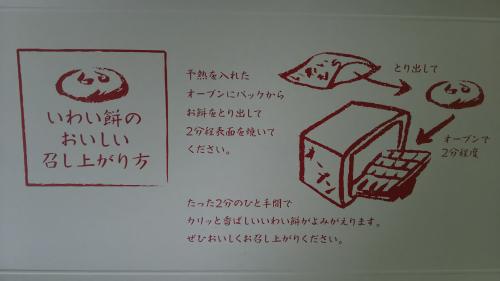 いわい餅の
おいしい
召し上がり方
予熱を入れた
オーブンにパックから
お餅をとり出して
2分程表面を焼いて
ください。
とり出して
オーブンで
2分程度
オーブン
たった2分のひと手間で
カリッと香ばしいいわい餅がよみがえります。
ぜひおいしくお召し上がりください。